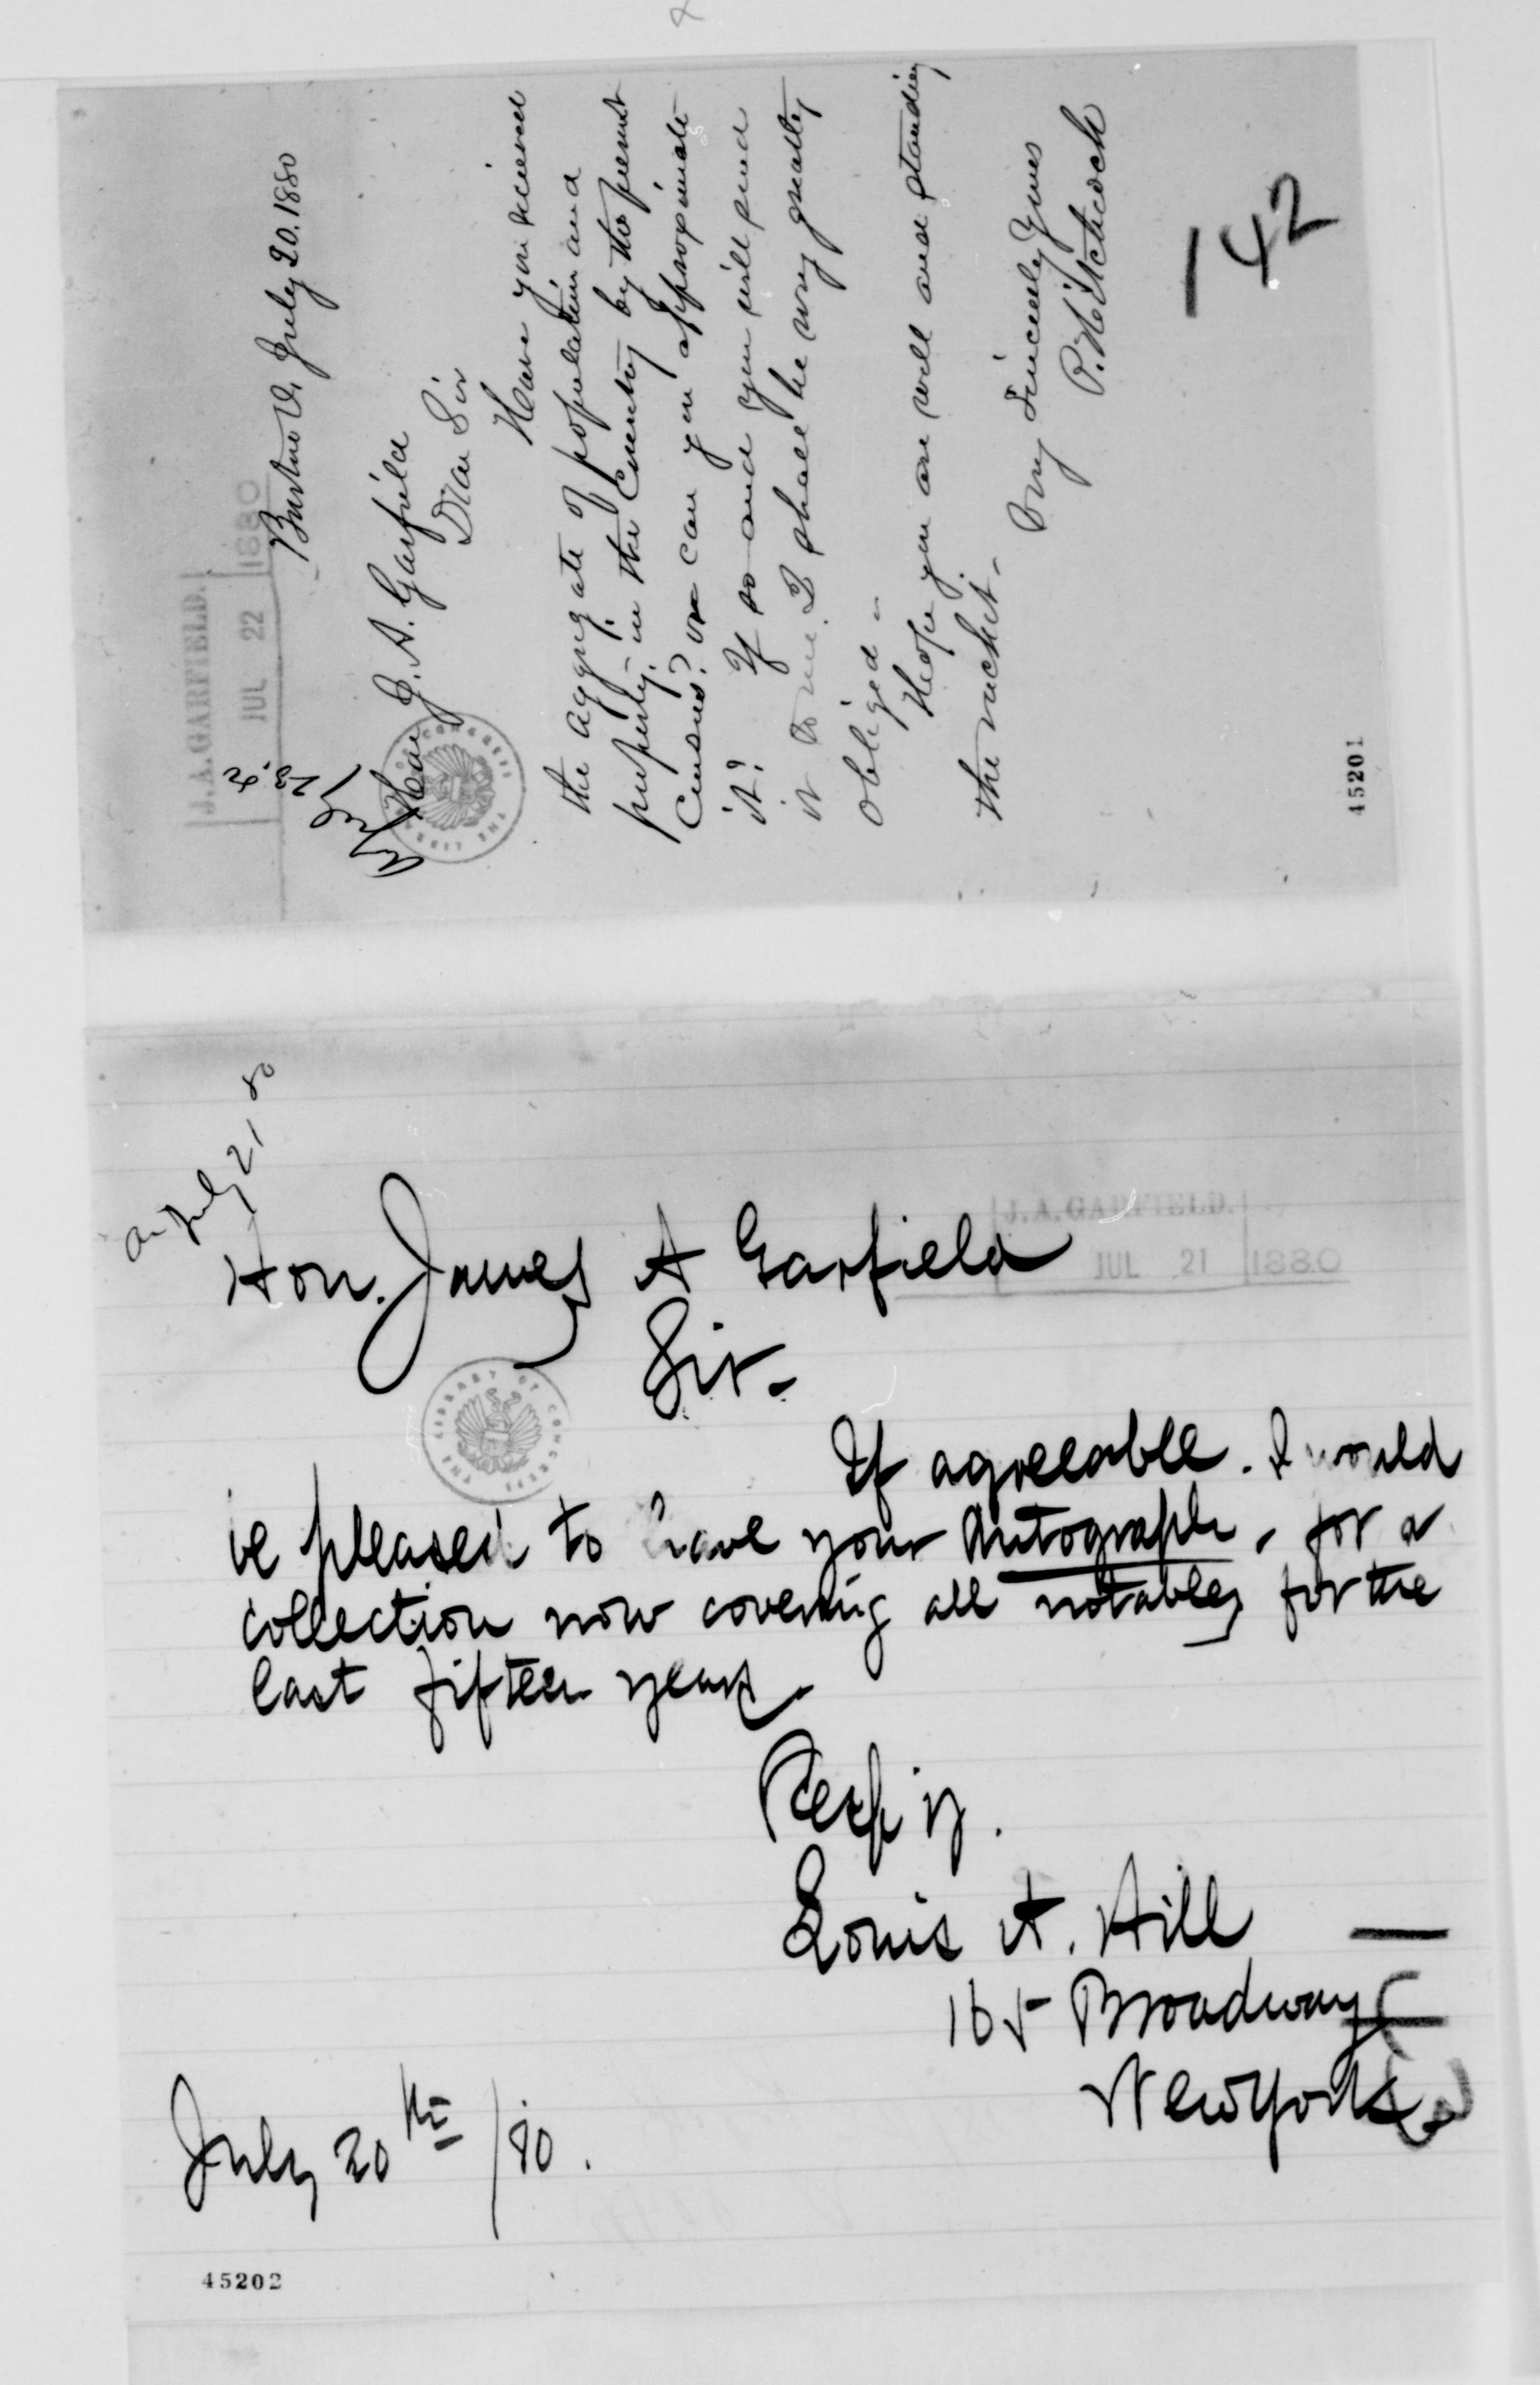 J. A. GARFIELD.
JUL 22 1880
Burton O. July 20. 1880
Hon J. A. Garfield
Dear Sir
Have you received
the aggregate of population and
property in the Country by the present
Census? or can you approximate
it? If so and you will send
it to me I shall be very greatly
obliged -
Hope you are well and standing
the racket -
Very Sincerely Yours
P. Hitchcock
142
THE LIBRARY OF CONGRESS
45201
July 21 80
J. A. GARFIELD.
JUL 21 1880
Hon. James A Garfield
Sir -
THE LIBRARY OF CONGRESS
If agreeable. I would
be pleased to have your Autograph, for a
collection now covering all notables for the
last fifteen years.
Resp y.
Louis A. Hill
165 Broadway
New York
July 20th /80.
45202